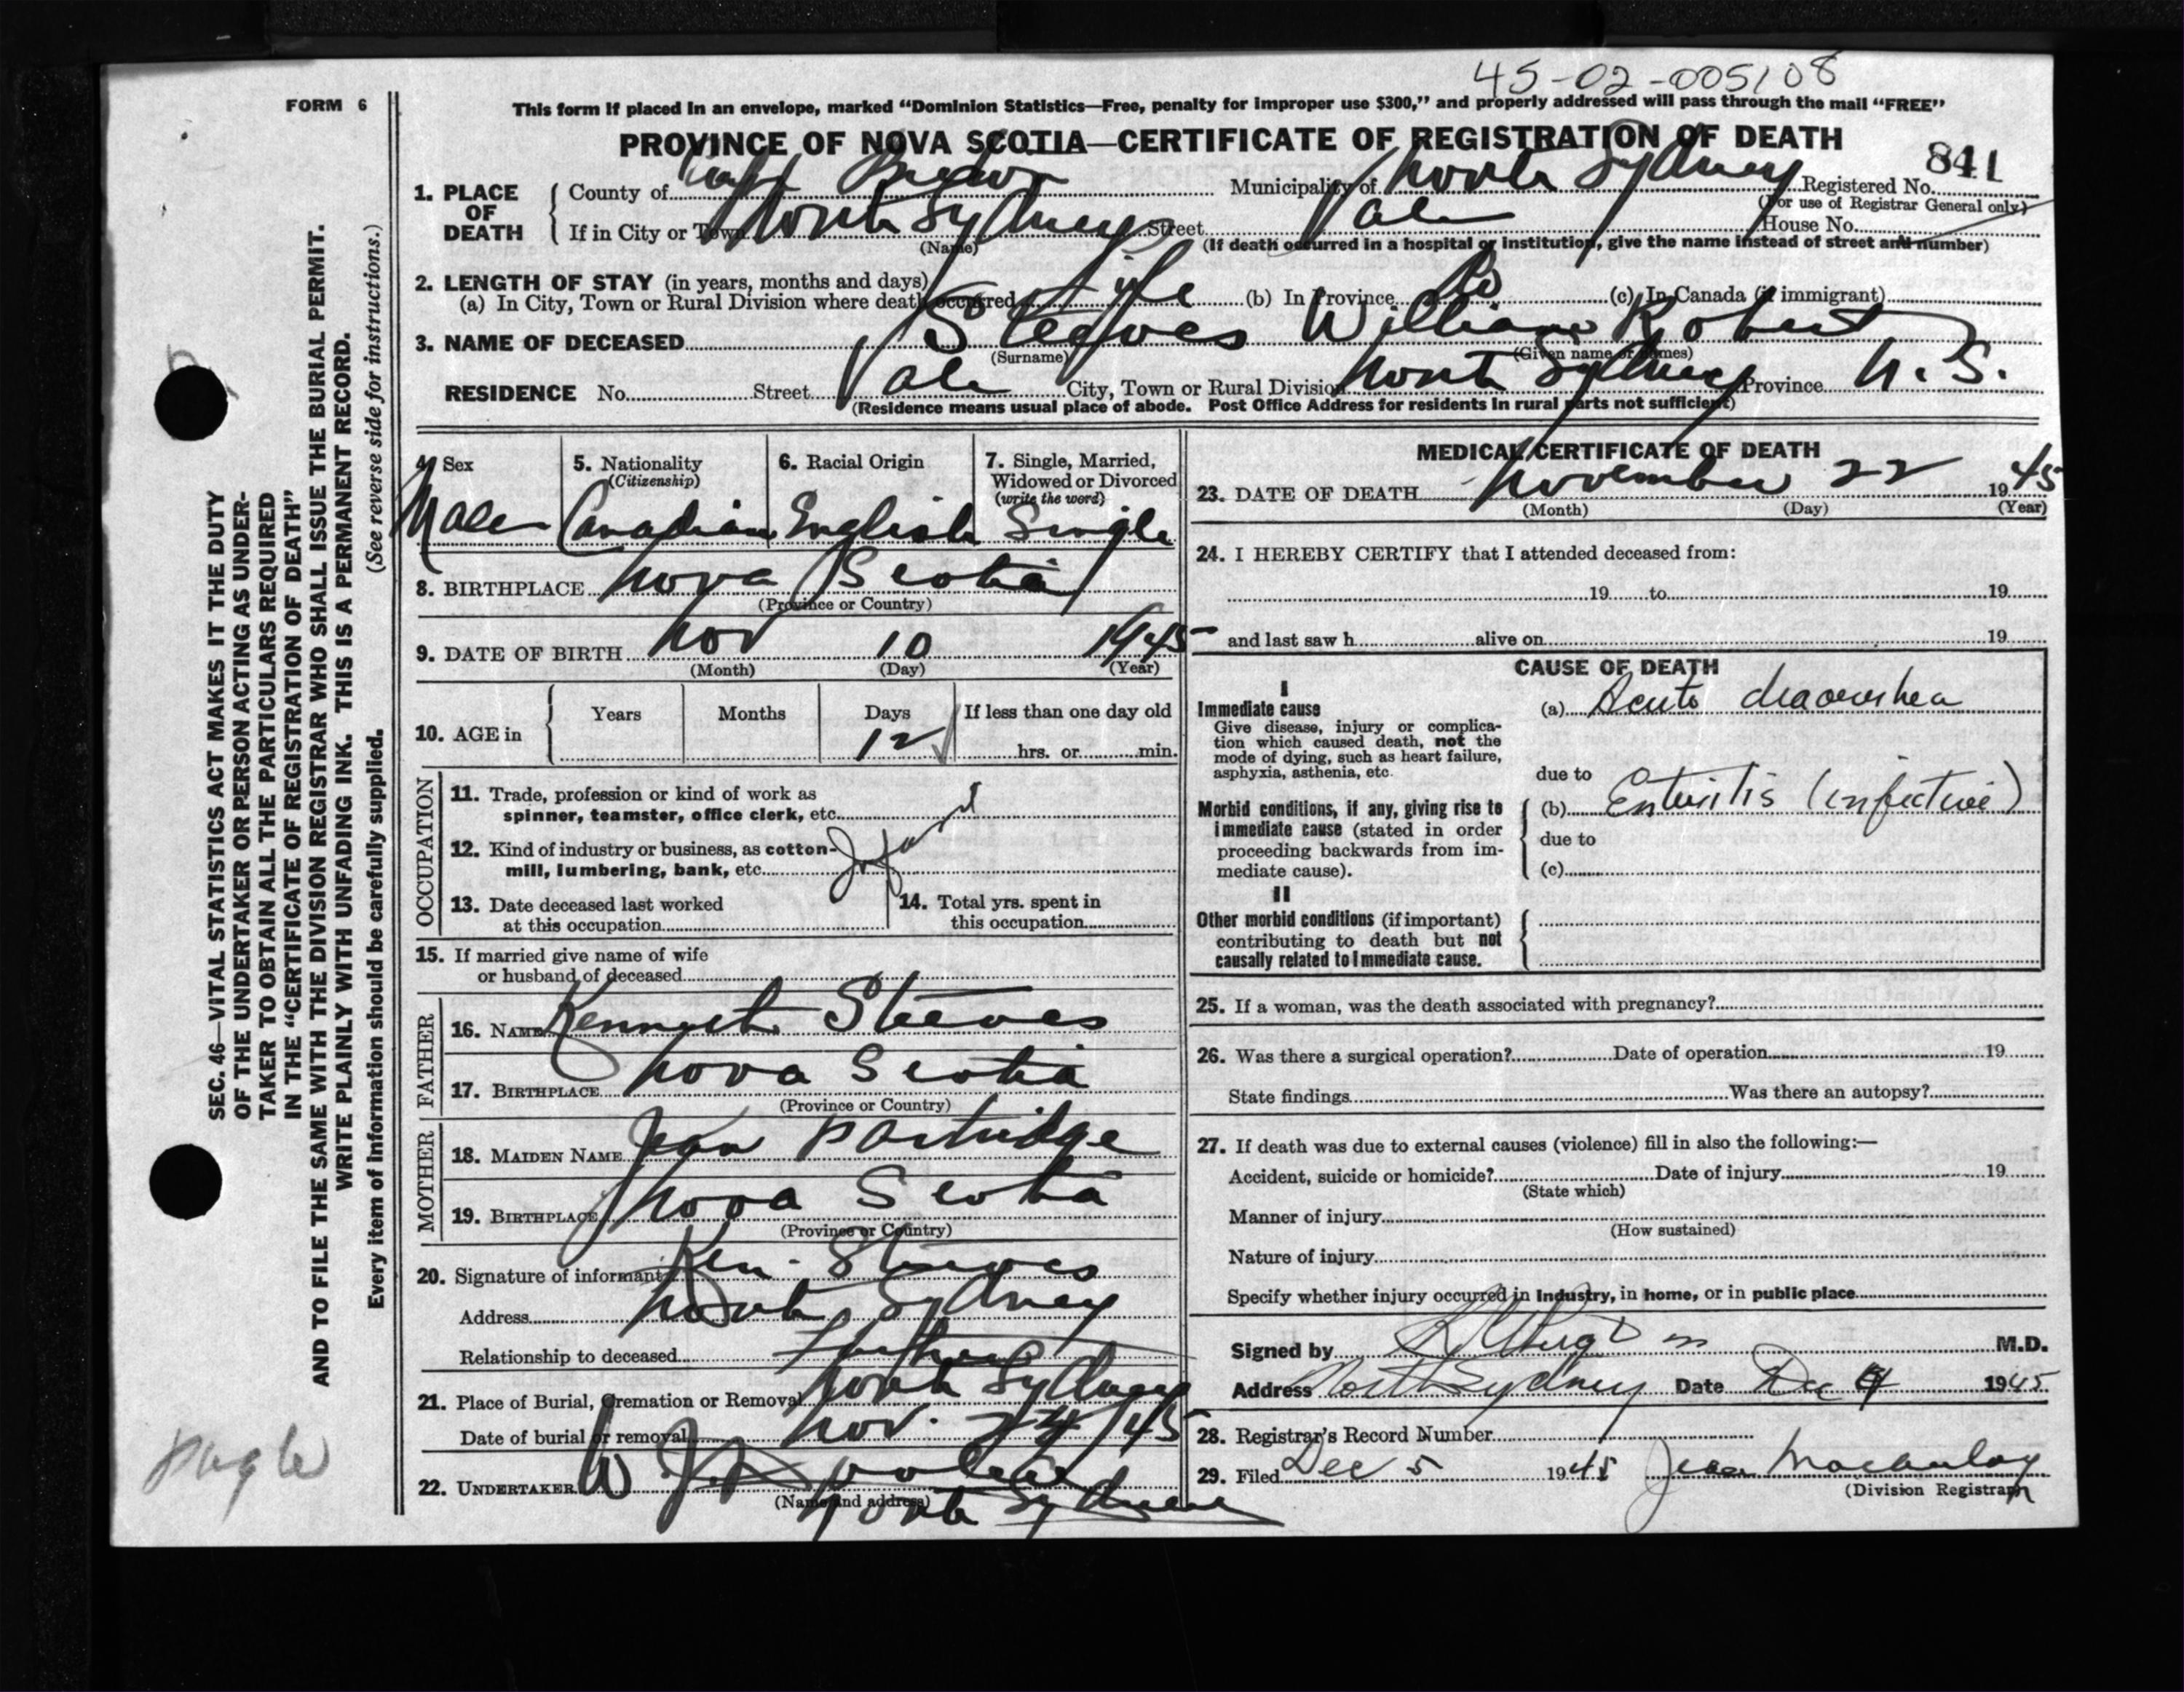 45-02-005108
FORM 6
This form if placed in an envelope, marked "Dominion Statistics—Free, penalty for improper use $300," and properly addressed will pass through the mail "FREE"
PROVINCE OF NOVA SCOTIA—CERTIFICATE OF REGISTRATION OF DEATH
841
1. PLACE OF DEATH
County of Cape Breton Municipality of North Sydney Registered No.
(For use of Registrar General only)
If in City or Town North Sydney Street Vale House No.
(Name) (If death occurred in a hospital or institution, give the name instead of street and number)
2. LENGTH OF STAY (in years, months and days)
(a) In City, Town or Rural Division where death occurred Life (b) In Province Do (c) In Canada (if immigrant)
3. NAME OF DECEASED Steeves William Robert
(Surname) (Given name or names)
RESIDENCE No. Street Vale City, Town or Rural Division North Sydney Province N.S.
(Residence means usual place of abode. Post Office Address for residents in rural parts not sufficient)
4. Sex 5. Nationality (Citizenship) 6. Racial Origin 7. Single, Married, Widowed or Divorced (write the word)
Male Canadian English Single
8. BIRTHPLACE Nova Scotia
(Province or Country)
9. DATE OF BIRTH Nov 10 1945
(Month) (Day) (Year)
10. AGE in Years Months Days If less than one day old
12 hrs. or min.
OCCUPATION
11. Trade, profession or kind of work as
spinner, teamster, office clerk, etc.
12. Kind of industry or business, as cotton-
mill, lumbering, bank, etc.
13. Date deceased last worked
at this occupation
14. Total yrs. spent in
this occupation
15. If married give name of wife
or husband of deceased
FATHER
16. NAME Kenneth Steeves
17. BIRTHPLACE Nova Scotia
(Province or Country)
MOTHER
18. MAIDEN NAME Jean Partridge
19. BIRTHPLACE Nova Scotia
(Province or Country)
20. Signature of informant Ken. Steeves
Address North Sydney
Relationship to deceased Father
21. Place of Burial, Cremation or Removal North Sydney
Date of burial or removal Nov. 24/45
22. UNDERTAKER W. J.
(Name and address) North Sydney
MEDICAL CERTIFICATE OF DEATH
23. DATE OF DEATH November 22 1945
(Month) (Day) (Year)
24. I HEREBY CERTIFY that I attended deceased from:
19 to 19
and last saw h alive on 19
CAUSE OF DEATH
I
Immediate cause
Give disease, injury or complica-
tion which caused death, not the
mode of dying, such as heart failure,
asphyxia, asthenia, etc.
(a) Acute diaorrhea
due to
Morbid conditions, if any, giving rise to
immediate cause (stated in order
proceeding backwards from im-
mediate cause).
(b) Enteritis (infective)
due to
(c)
II
Other morbid conditions (if important)
contributing to death but not
causally related to immediate cause.
25. If a woman, was the death associated with pregnancy?
26. Was there a surgical operation? Date of operation 19
State findings Was there an autopsy?
27. If death was due to external causes (violence) fill in also the following:—
Accident, suicide or homicide? Date of injury 19
(State which)
Manner of injury
(How sustained)
Nature of injury
Specify whether injury occurred in industry, in home, or in public place
Signed by M.D.
Address North Sydney Date Dec 4 1945
28. Registrar's Record Number
29. Filed Dec 5 1945 Jean Macaulay
(Division Registrar)
SEC. 46—VITAL STATISTICS ACT MAKES IT THE DUTY
OF THE UNDERTAKER OR PERSON ACTING AS UNDER-
TAKER TO OBTAIN ALL THE PARTICULARS REQUIRED
IN THE "CERTIFICATE OF REGISTRATION OF DEATH"
AND TO FILE THE SAME WITH THE DIVISION REGISTRAR WHO SHALL ISSUE THE BURIAL PERMIT.
WRITE PLAINLY WITH UNFADING INK. THIS IS A PERMANENT RECORD.
Every item of information should be carefully supplied. (See reverse side for instructions.)